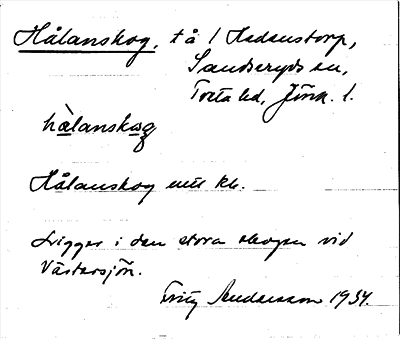 Hålanskog, tå / Hedenstorp,
Sandseryds sn,
Tveta hd, Jönk. l.
hàlanskog
Hålanskog mtl kb.
Ligger i den stora skogen vid
Västersjön.
Fritz Andersson 1934.